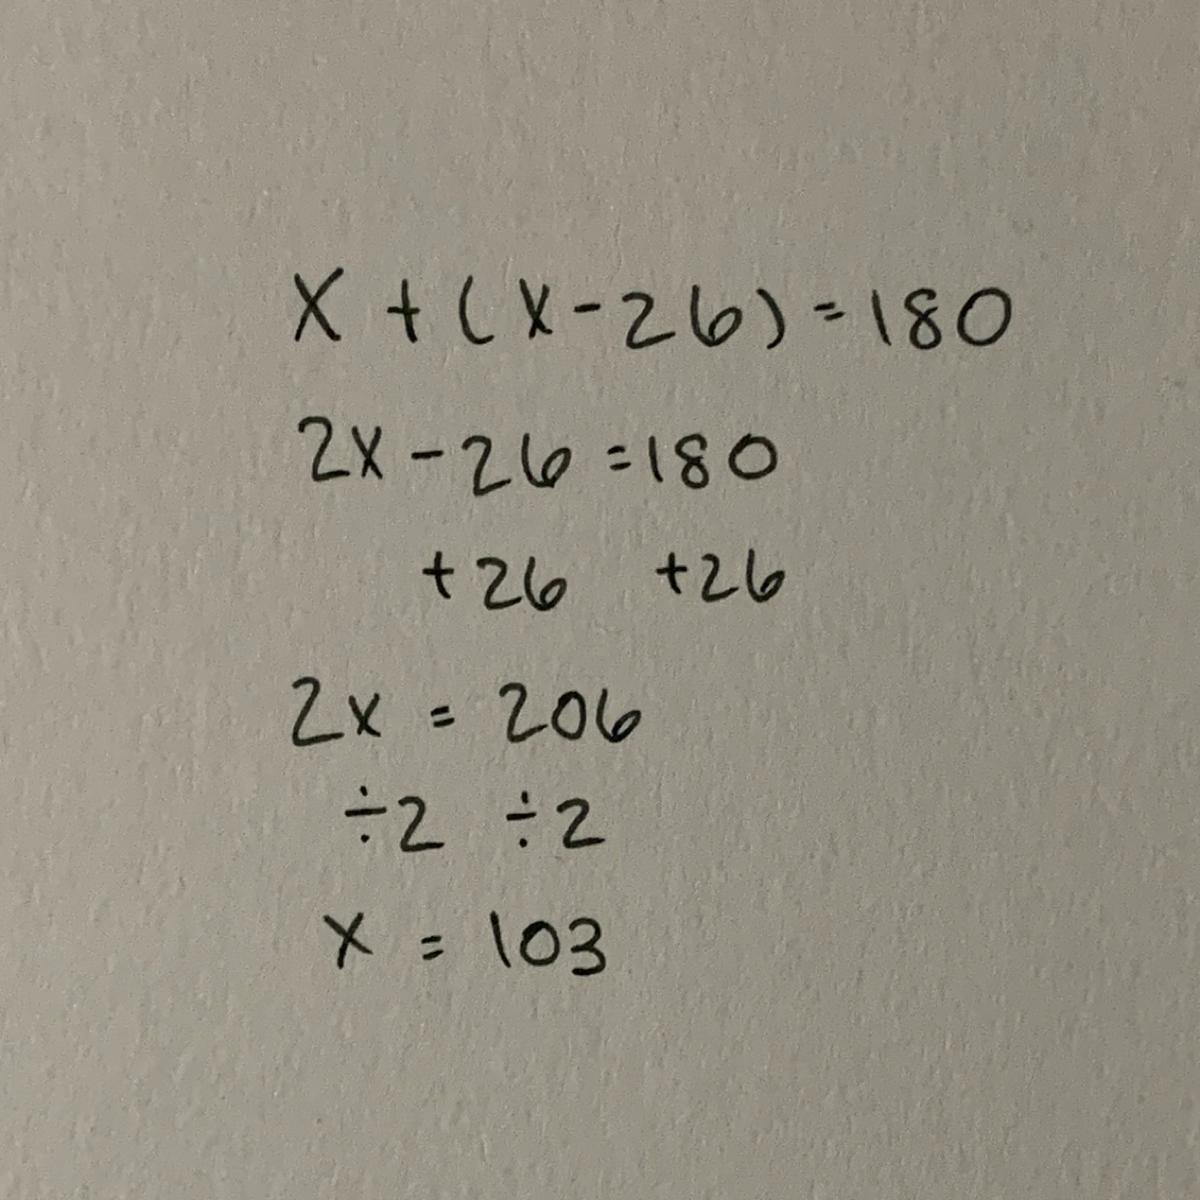 x + (x - 26) = 180
2x - 26 = 180
+ 26 + 26
2x = 206
÷2 ÷2
x = 103